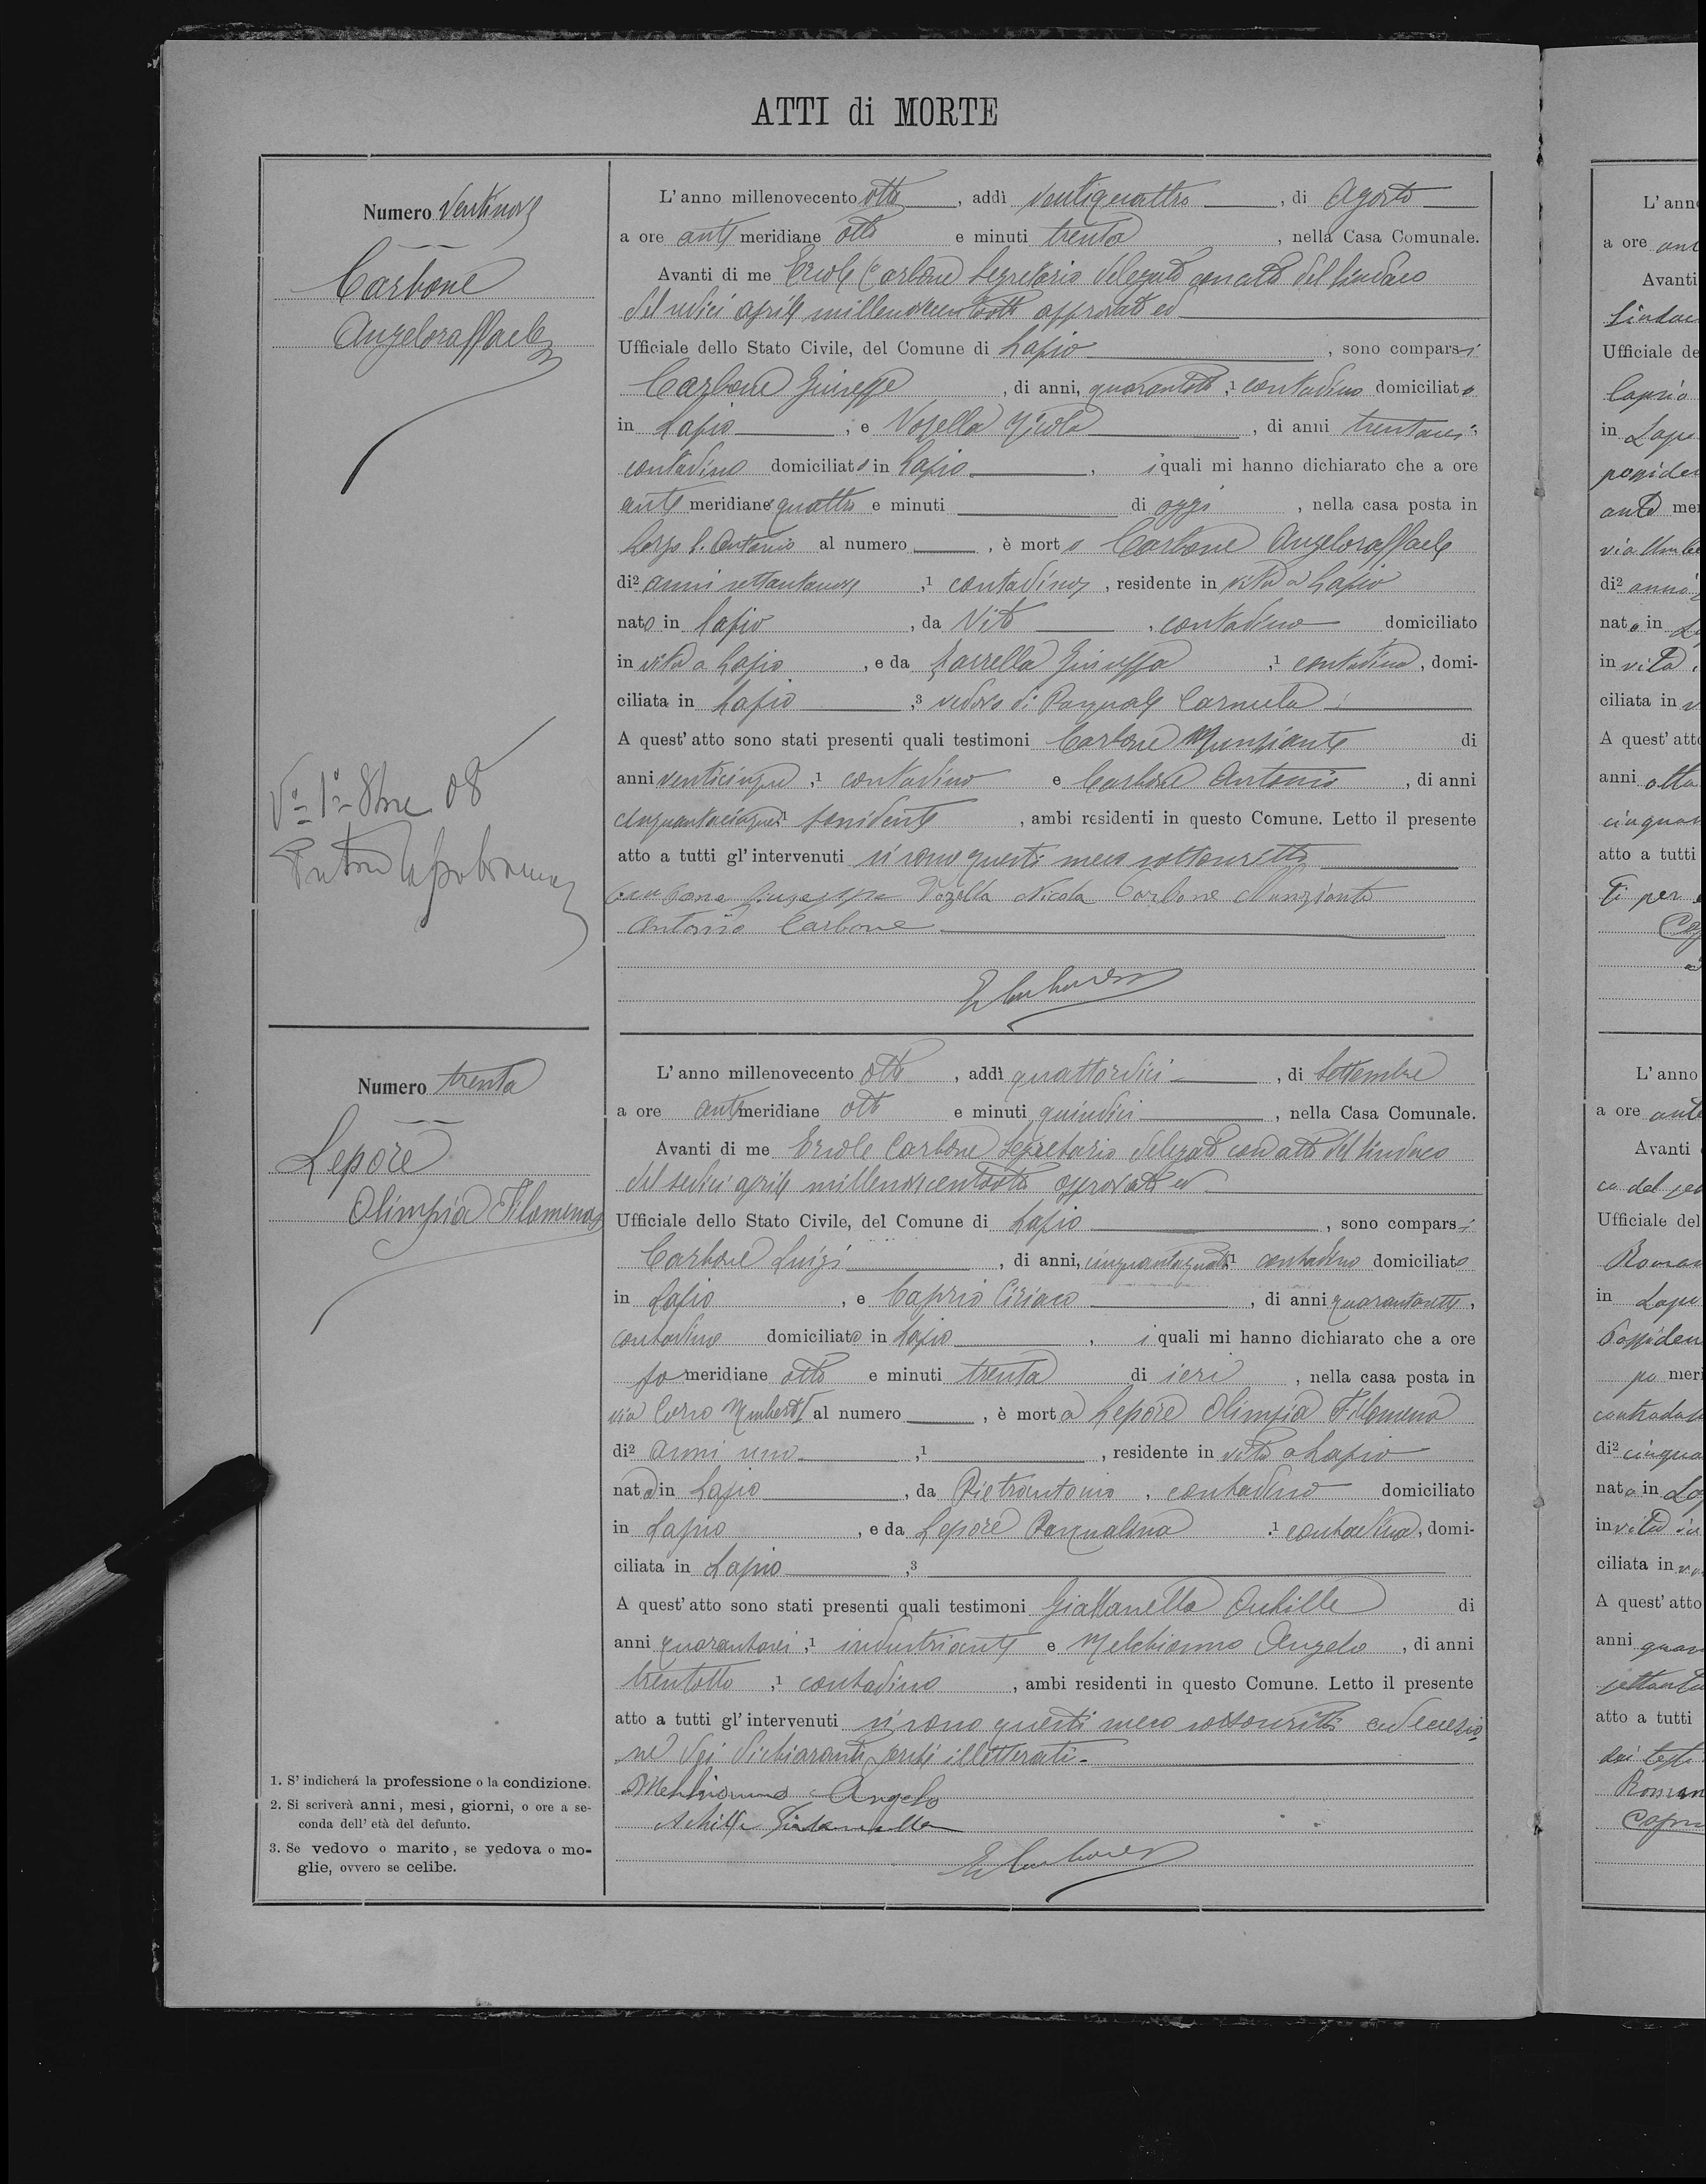 ATTI di MORTE
Numero Ventinove
Carbone
Angeloraffaele
L'anno millenovecento otto, addì ventiquattro, di Agosto
a ore ante meridiane otto e minuti trenta, nella Casa Comunale.
Avanti di me Ercole Carbone Segretario delegato con atto del Sindaco
del sedici aprile millenovecentootto approvato ed
Ufficiale dello Stato Civile, del Comune di Lapio, sono comparsi
Carbone Giuseppe, di anni, quarantotto,1 contadino domiciliato
in Lapio, e Vozella Nicola, di anni trentasei,
contadino domiciliato in Lapio, i quali mi hanno dichiarato che a ore
ante meridiane quattro e minuti di oggi, nella casa posta in
Largo S. Antonio al numero, è morto Carbone Angeloraffaele
di2 anni settantanove,1 contadino, residente in vita a Lapio
nato in Lapio, da Vito, contadino domiciliato
in vita a Lapio, e da Giuseppa,1 contadina, domi-
ciliata in Lapio,3 vedovo di Pasquale Carmela
A quest'atto sono stati presenti quali testimoni Carbone Nunziante di
anni venticinque,1 contadino e Carbone Antonio, di anni
cinquantacinque, ambi residenti in questo Comune. Letto il presente
atto a tutti gl'intervenuti si sono questi meco sottoscritti
Carbone Giuseppe Vozella Nicola Carbone Nunziante
Antonio Carbone
E Carbone
Vo 1o 8bre 08
Numero trenta
Lepore
Olimpia Filomena
L'anno millenovecento otto, addì quattordici, di Settembre
a ore antimeridiane otto e minuti quindici, nella Casa Comunale.
Avanti di me Ercole Carbone Segretario delegato con atto del Sindaco
del sedici aprile millenovecentootto approvato ed
Ufficiale dello Stato Civile, del Comune di Lapio, sono comparsi
Carbone Luigi, di anni,1 contadino domiciliato
in Lapio, e Caprio Ciriaco, di anni,
contadino domiciliato in Lapio, i quali mi hanno dichiarato che a ore
po meridiane otto e minuti trenta di ieri, nella casa posta in
via Corso Umberto I al numero, è morta Lepore Olimpia Filomena
di2 anni uno,1, residente in vita a Lapio
nata in Lapio, da Pietrantonio, contadino domiciliato
in Lapio, e da Lepore Pasqualina,1 contadina, domi-
ciliata in Lapio,3
A quest'atto sono stati presenti quali testimoni Giallanella Achille di
anni quarantasei,1 industriante e Melchionno Angelo, di anni
trentotto,1 contadino, ambi residenti in questo Comune. Letto il presente
atto a tutti gl'intervenuti si sono questi meco sottoscritti ad eccezio
ne dei dichiaranti perché illetterati.
Melchionno Angelo
Achille Giallanella
E Carbone
1. S'indicherà la professione o la condizione.
2. Si scriverà anni, mesi, giorni, o ore a se-
conda dell'età del defunto.
3. Se vedovo o marito, se vedova o mo-
glie, ovvero se celibe.
L'ann
a ore ant
Avanti
Sindac
Ufficiale de
Caprio
in Lapi
posside
ante me
via Umbe
di2 anni
nato in L
in vita
ciliata in v
A quest'atto
anni otta
cinquan
atto a tutti
ti per
L'anno
a ore ante
Avanti
co del se
Ufficiale del
Roman
in Lapi
Possiden
po meri
contrada
di2 cinqua
nato in La
in vita in
ciliata in v
A quest'atto
anni quar
settanta
atto a tutti
dai test
Roman
Capri